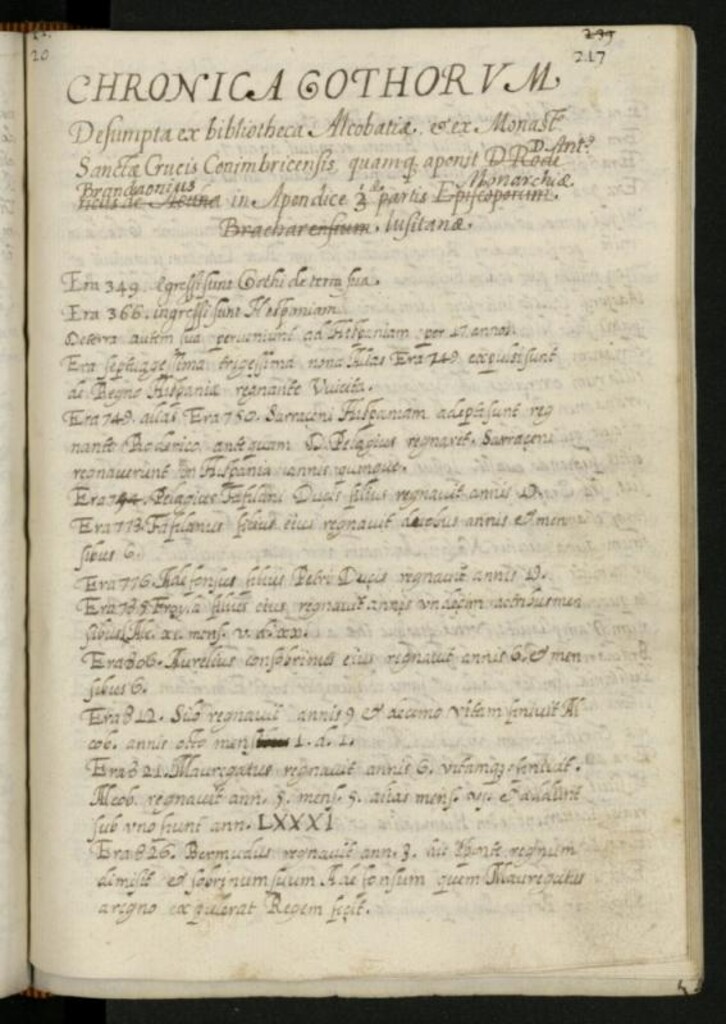 20
239
217
CHRONICA GOTHORVM
Desumpta ex bibliotheca Alcobatiæ, & ex Monast.
Sanctæ Crucis Conimbricensis, quamq. aponit D. Rode D. Ant.º
ricus de Acuña Brandaonius in Apendice 3 partis Episcoporum Monarchiæ
Bracharensium. lusitanæ.
Era 349. egressi sunt Gothi de terra sua.
Era 366. ingressi sunt Hespaniam.
De terra autem sua perveniunt ad Hespaniam per 17 annos.
Era septuagessima trigessima nona Alias Era 749 expulsi sunt
de Regno Hispaniæ regnante Vuitita.
Era 749. alias Era 750. Sarraceni Hispaniam adepti sunt reg
nante Roderico antequam D. Pelagius regnaret. Sarraceni
regnaverunt in Hispania annis quinque.
Era Pelagius Fafilani Ducis filius regnavit annis 19.
Era 773 Fafilanus filius eius regnavit duobus annis et men
sibus 6.
Era 776. Adefonsus filius Petri Ducis regnavit annis 19.
Era 795 Froyla filius eius regnavit annis undecim
sibus mens. v. d. xx.
Era 806. Aurelius consobrinus eius regnavit annis 6. et men
sibus 6.
Era 812. Silo regnavit annis 9 et decimo vitam finivit Al
cob. annis octo mens 1. d. 1.
Era 821. Mauregatus regnavit annis 6. vitamq. finivit.
Alcob. regnavit ann. 5. mens. 5. alias mens. vj.
sub uno fiunt ann. LXXXI
Era 826. Bermudus regnavit ann. 3. sponte regnum
dimisit et sobrinum suum Adefonsum quem Mauregatus
a regno expulerat Regem fecit.